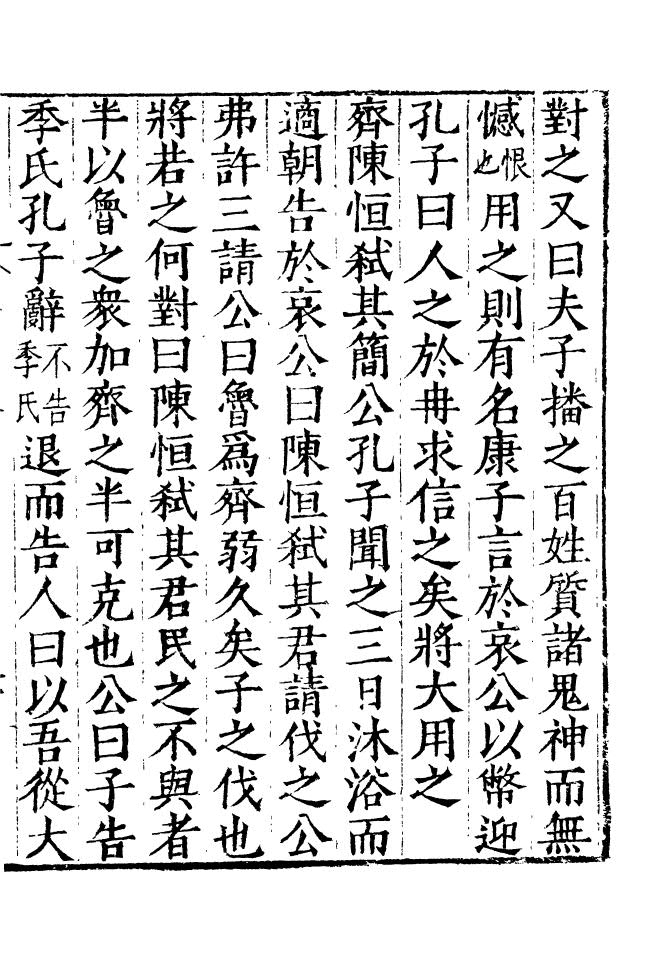 對之又曰夫子播之百姓質諸鬼神而無
憾恨也用之則有名康子言於哀公以幣迎
孔子曰人之於冉求信之矣將大用之
齊陳恒弒其簡公孔子聞之三日沐浴而
適朝告於哀公曰陳恒弒其君請伐之公
弗許三請公曰魯爲齊弱久矣子之伐也
將若之何對曰陳恒弒其君民之不與者
半以魯之衆加齊之半可克也公曰子告
季氏孔子辭不告季氏退而告人曰以吾從大